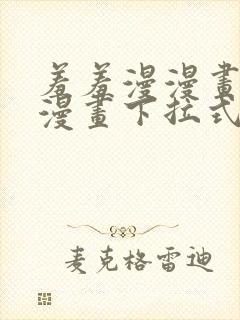 羞羞漫漫畫
漫畫下拉式
麦克格雷迪